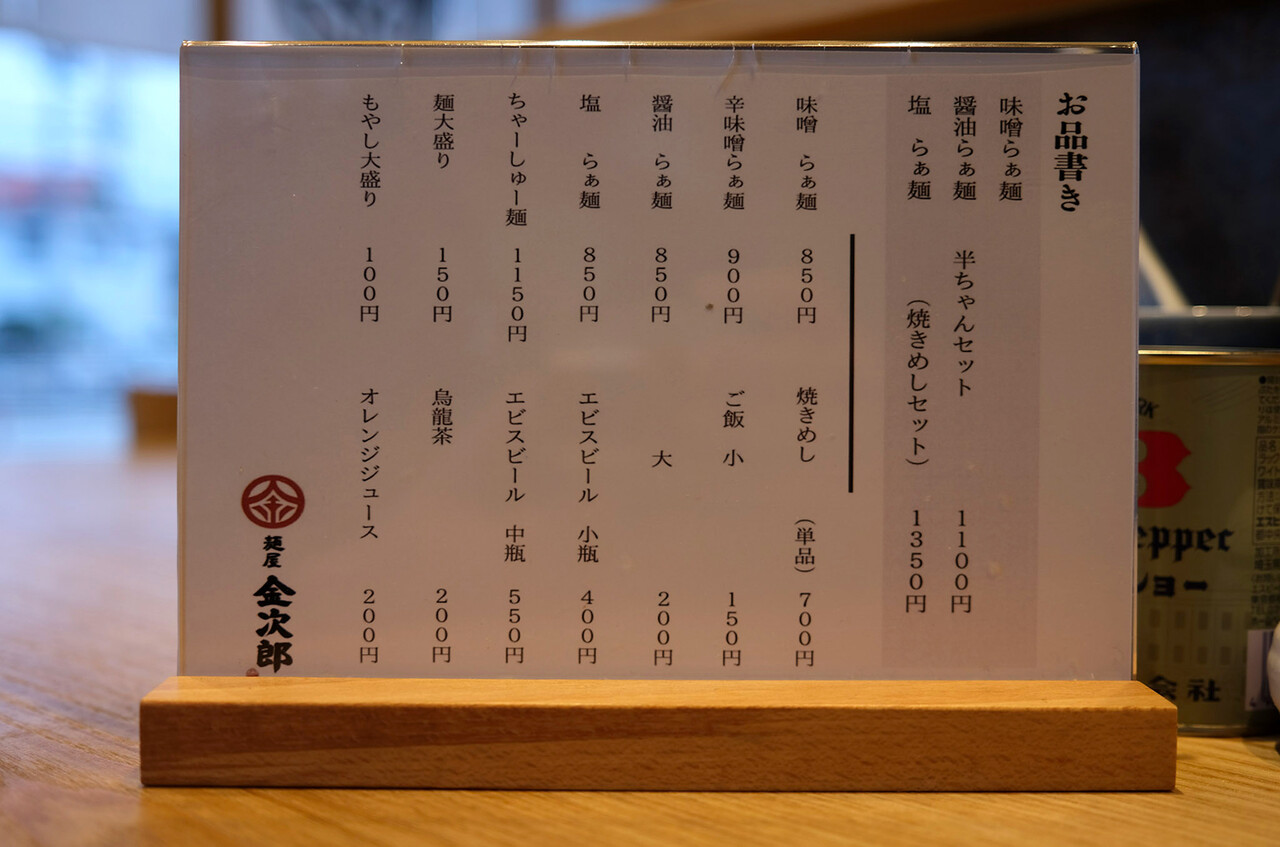 お品書き
味噌らぁ麺
醤油らぁ麺 半ちゃんセット 1100円
塩 らぁ麺 (焼きめしセット) 1350円
味噌 らぁ麺 850円 焼きめし (単品) 700円
辛味噌らぁ麺 900円 ご飯 小 150円
醤油 らぁ麺 850円 大 200円
塩 らぁ麺 850円 ヱビスビール 小瓶 400円
ちゃーしゅー麺 1150円 ヱビスビール 中瓶 550円
麺大盛り 150円 烏龍茶 200円
もやし大盛り 100円 オレンジジュース 200円
麺屋 金次郎
epper
ョー
会社